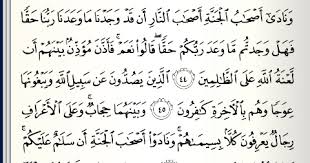 وَنَادَىٰٓ أَصْحَٰبُ ٱلْجَنَّةِ أَصْحَٰبَ ٱلنَّارِ أَن قَدْ وَجَدْنَا مَا وَعَدَنَا رَبُّنَا حَقًّا
فَهَلْ وَجَدتُّم مَّا وَعَدَ رَبُّكُمْ حَقًّا ۖ قَالُوا۟ نَعَمْ ۚ فَأَذَّنَ مُؤَذِّنٌۢ بَيْنَهُمْ أَن
لَّعْنَةُ ٱللَّهِ عَلَى ٱلظَّٰلِمِينَ ٤٤ ٱلَّذِينَ يَصُدُّونَ عَن سَبِيلِ ٱللَّهِ وَيَبْغُونَهَا
عِوَجًا وَهُم بِٱلْءَاخِرَةِ كَٰفِرُونَ ٤٥ وَبَيْنَهُمَا حِجَابٌ ۚ وَعَلَى ٱلْأَعْرَافِ
رِجَالٌ يَعْرِفُونَ كُلًّۢا بِسِيمَىٰهُمْ ۚ وَنَادَوْا۟ أَصْحَٰبَ ٱلْجَنَّةِ أَن سَلَٰمٌ عَلَيْكُمْ ۚ